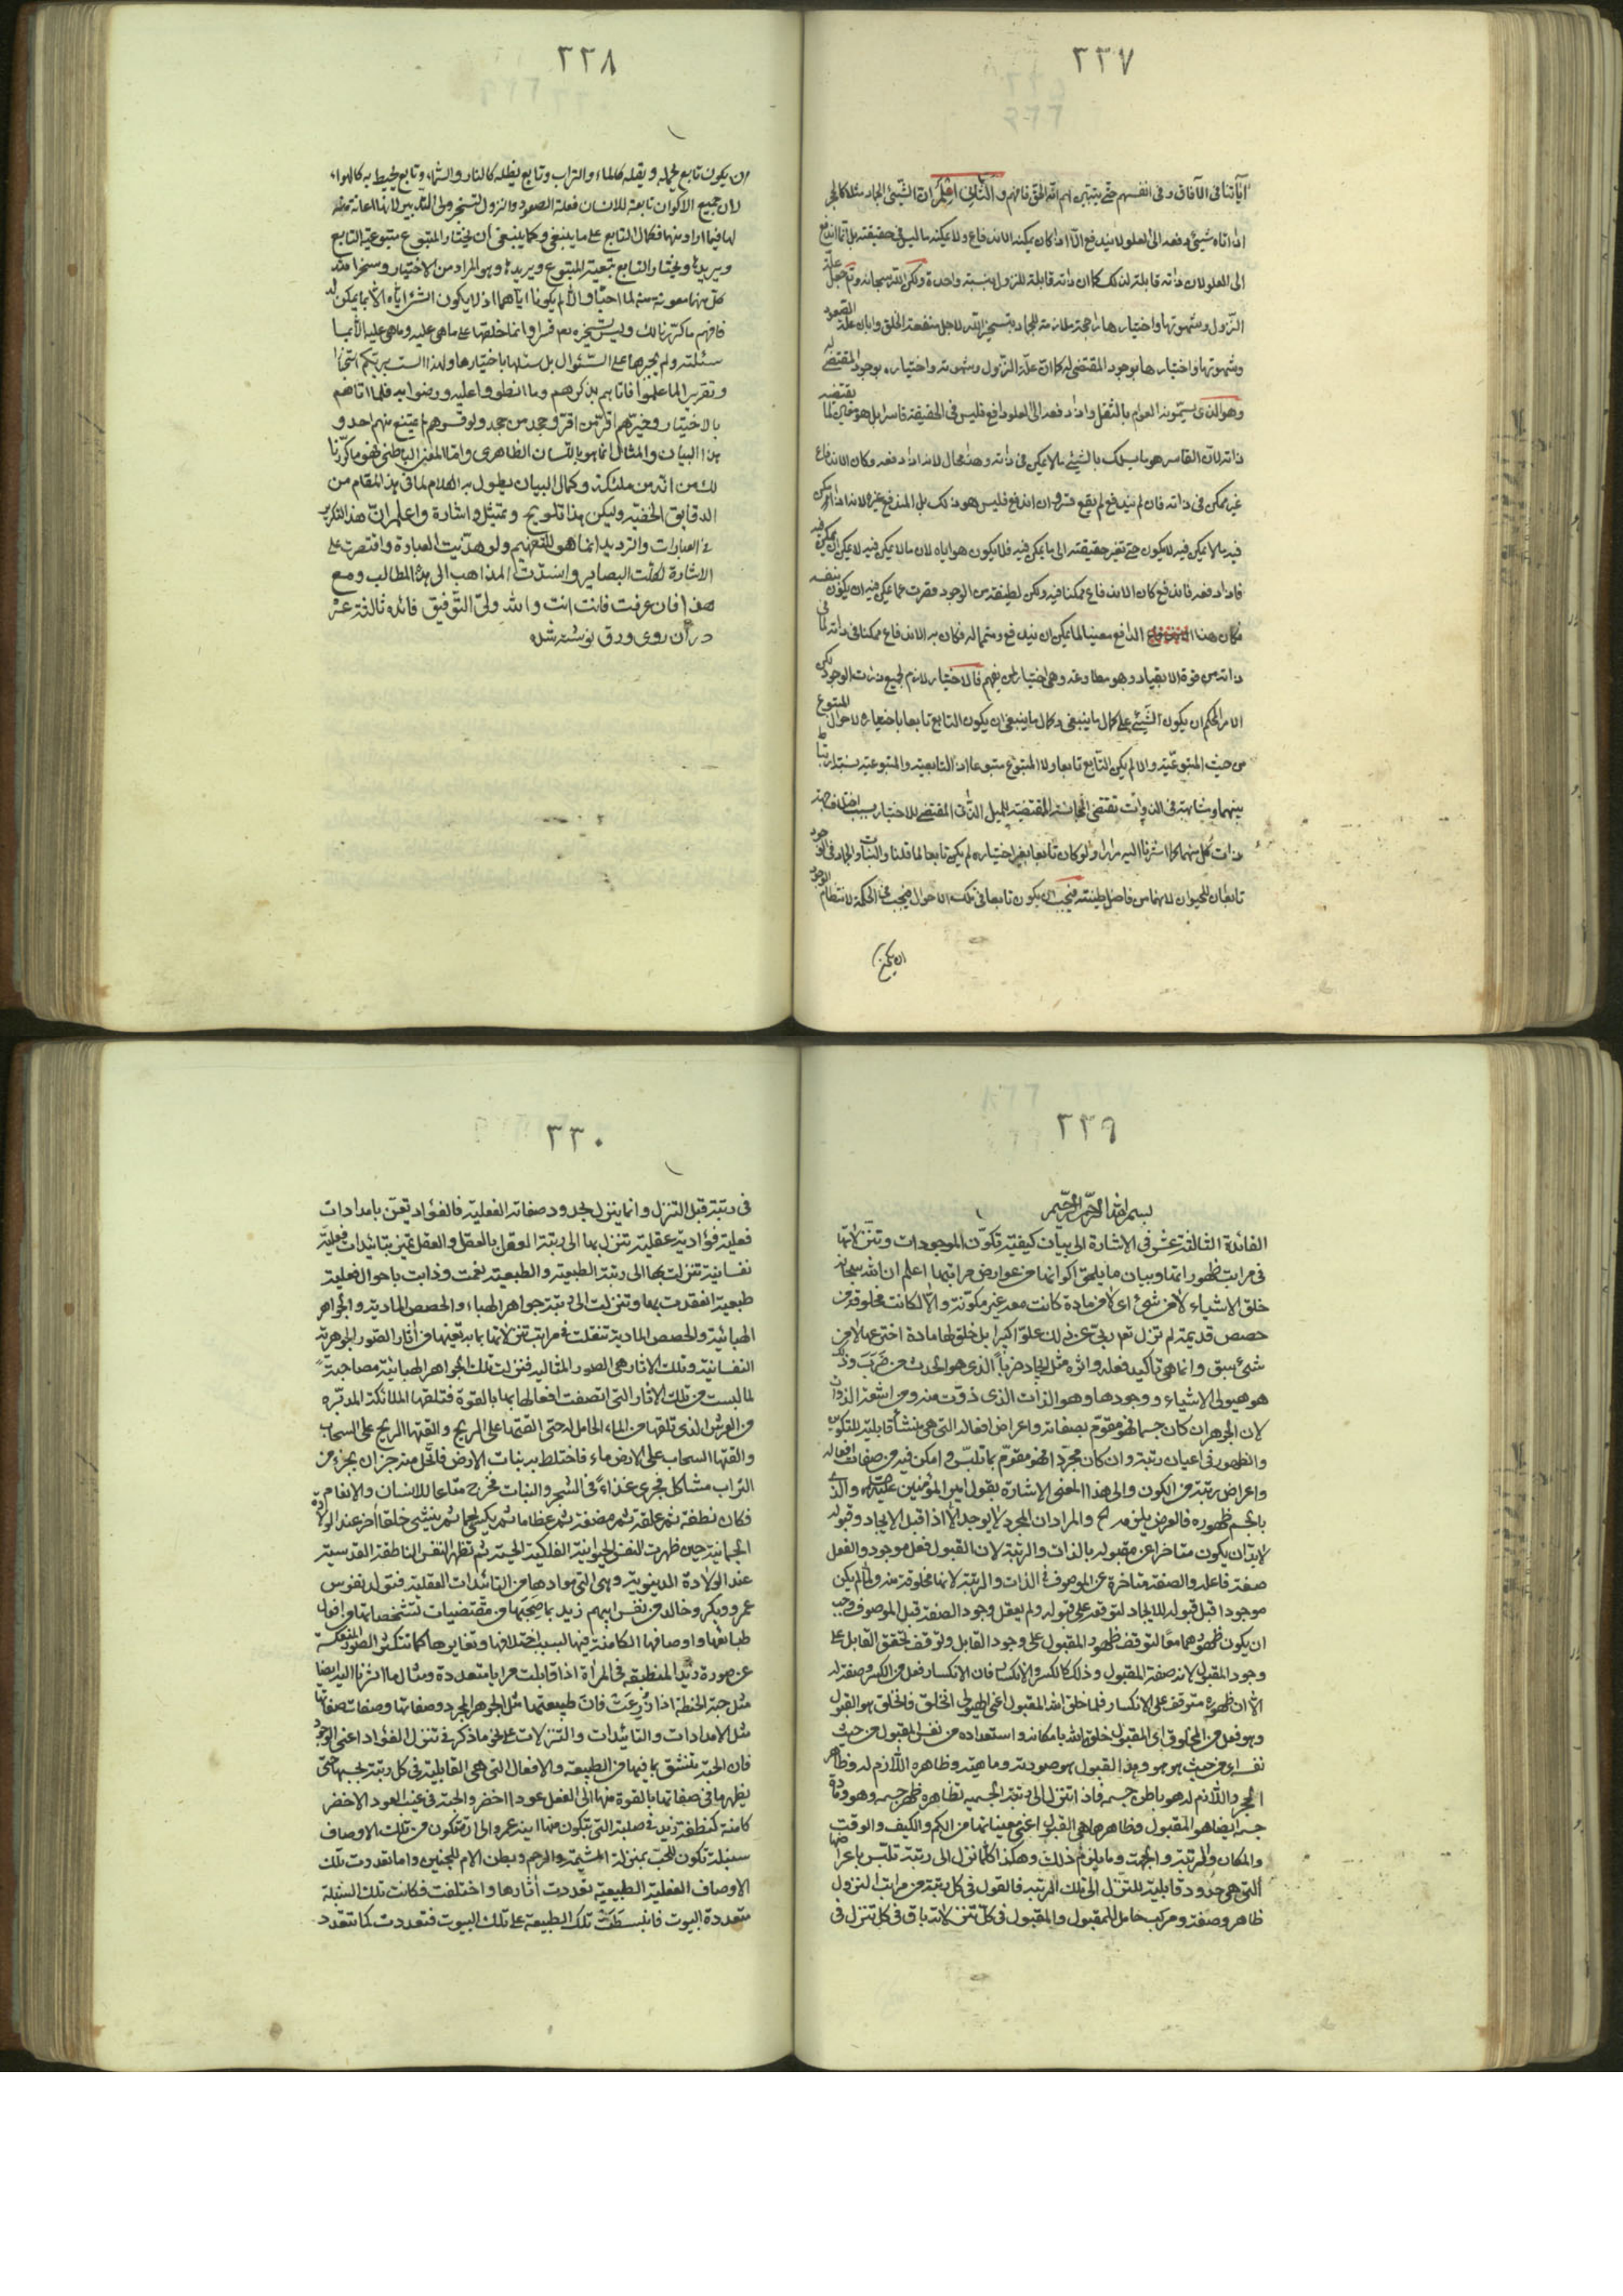 ٣٣٧
آياتنا فى الآفاق وفى انفسهم حتى يتبين لهم انه الحق فافهم و الثانى اعلم ان الشيئ الجماد مثلا كالحجر
اذا اتاه شيئ دفعه الى العلو لا يندفع الا اذا كان يمكنه الاندفاع ولا يمكنه ما ليس فى حقيقته بل انما اندفع
الى العلو لان ذاته قابلة لذلك كما ان ذاته قابلة للنزول بنسبة واحدة ولكن الله سبحانه وتم جعل علة
النزول وشهوتها واختيارها راجحة ملازمة للجماد بتسخير الله لاجل منفعة الخلق وابان علة الصعود
وشهوتها واختيارها بوجود المقتضى له كما ان علة النزول وشهوته واختياره بوجود المقتضى له
وهو الذى يسمونه العوام بالثقل واذا دفعه الى العلو دافع فليس فى الحقيقة قاسرا بل هو معين لما يقتضيه
ذاته لان القاسر هو ما يسلك بالشيئ ما لا يمكن فى ذاته وهذا محال لانه اذا دفعه وكان الاندفاع
غير ممكن فى ذاته فان لم يندفع لم يقع قسر وان اندفع فليس هو ذلك بل المندفع غيره لانه اذا لم يمكن
فيه ما لا يمكن فيه لا يكون حتى تغير حقيقته الى ما يمكن فيه فلا يكون هو اياه لان ما لا يمكن فيه لا يمكن ان يمكن فيه
فاذا دفعه فاندفع كان الاندفاع ممكنا فيه ولكن لطيفته من الوجود قصرت عما يمكن فيه ان يكون بنفسه
فكان هذا الدافع معينا لما يمكن ان يندفع ومتمما له فكان به الاندفاع ممكنا فى ذاته لما فى
ذاته من قوة الانقياد وهو مطاوعة وهى اختيار لمن يفهم فالاختيار لازم لجميع ذرات الوجود لكن
الامر المحكم ان يكون الشيئ على كمال ما ينبغى وكمال ما ينبغى ان يكون التابع تابعا باختياره لاحوال المتبوع
من حيث المتبوعية والا لم يكن التابع تابعا ولا المتبوع متبوعا اذ التابعية والمتبوعية نسبة ارتباط
بينهما ومشابهة فى الذوات تقتضى المجانسة المقتضية للميل الذاتى المقتضى للاختيار بسبب
ذات كل منهما كما اشرنا اليه مرارا ولو كان تابعا بغير اختياره لم يكن تابعا لما قلنا والنبات والجماد فى الوجود
تابعان للحيوان لانهما من فاضل طينته فيجب ان يكون تابعا فى تلك الاحوال فيجب فى الحكمة لانتظام الوجود
ان يكون
٣٣٨
ان يكون تابع يحمله ويقله كالماء والتراب وتابع يظله كالنار والسماء وتابع يحيط به كالهواء
لان جميع الاكوان تابعة للانسان فعلة الصعود والنزول لتسخير ولى التدبير لانها اعانة منه
لها فيما اراد منها فكمال التابع على ما ينبغى وكما ينبغى ان يختار المتبوع متبوعية التابع
ويريدها ويختار التابع تبعية المتبوع ويريدها وهو المراد من الاختيار وسخرا منه
كل منهما معونة منه لما احبا والا لم يكونا اياهما اذ لا يكون الشئ اياه الا بما يمكن له
فافهم ما كررنا لك وليس تسخيره لهم قسرا وانما خلقها على ما هى عليه وما هى عليه الا بما
سئلته ولم يجبرها على السئوال بل سئلها باختيارها ولهذا الست بربكم استخبارا
وتقريرا لما علموا فاتاهم بذكرهم وما انطووا عليه ورضوا به فلما اتاهم
بالاختيار وخيرهم اقر من اقر وجحد من جحد ولو قسرهم لم يمتنع منهم احد و
هذا البيان والمثال انما هو باللسان الظاهرى واما المعنى الباطنى فهو ما كررنا
لك من انه من ملئكته وكمال البيان يطول به الكلام لما فى هذا المقام من
الدقايق الخفية وليكن هذا تلويح وتمثيل واشارة واعلم ان هذا التكرير
فى العبارات والترديد انما هو للتفهيم ولو هذبت العبارة واقتصرت على
الاشارة لكلت البصاير وانسدت المذاهب الى هذه المطالب ومع
هذا فان عرفت فانت انت والله ولى التوفيق فائده ثالثة عشر
در آن روى ورق نوشته شد
٣٣٩
بسم الله الرحمن الرحيم
الفائدة الثالثة عشر فى الاشارة الى بيان كيفية تكون الموجودات وتنزلاتها
فى مراتب ظهوراتها وبيان ما يلحق اكوانها من عوارض مراتبها اعلم ان الله سبحانه
خلق الاشياء لا من شئ اى لا من مادة كانت معه غير مكونة والا لكانت مخلوقة من
حصص قديمة لم تزل تعالى ربى عن ذلك علوا كبيرا بل خلق لها مادة اخترعها لا من
شئ سبق وانما هو تأكيد فعله واثره مثل ايجاد ضرباً الذى هو الحدث من ضَرَبَ وذلك
هو هيولى الاشياء ووجودها وهو الذات الذى ذوت منه ومن اشعته الذوات
لان الجوهر ان كان جسما فهو مقوم بصفاته واعراض افعاله التى هى منشأ قابليته للتكون
والظهور فى اعيان رتبته وان كان مجردا فهو مقوم بما تلبس وامكن فيه من صفات افعاله
واعراض رتبته من الكون والى هذا المعنى الاشارة بقول امير المؤمنين عليه السلام والذى
بالجسم ظهوره فالعرض يلزمه الخ والمراد ان المجرد لا يوجد الا اذا قبل الايجاد وقبوله
لابد ان يكون متاخرا عن مقبوله بالذات والرتبة لان القبول فعل موجود والفعل
صفة فاعله والصفة متاخرة عن الموصوف فى الذات والرتبة لانها مخلوقة منه ولما لم يكن
موجودا قبل قبوله للايجاد لتوقفه على قبوله ولم يعقل وجود الصفة قبل الموصوف وجب
ان يكون ظهورهما معا لتوقف ظهور المقبول على وجود القابل وتوقف تحقق القابل على
وجود المقبول لانه صفة المقبول وذلك كالكسر والانكسار فان الانكسار فعل من الكسر وصفة له
الا ان ظهوره متوقف على الانكسار فلما خلق الله المقبول اعنى الهيولى انخلق فانخلق هو القبول
وهو فعل من المخلوق اى المقبول خلق الله بامكانه واستعداده من نفس المقبول من حيث
نفسه اى من حيث هو هو وهذا القبول هو صورته وماهيته وظاهره اللازم له وظاهر
المجرد اللازم له هو باطن جسمه فاذا تنزل الى رتبة الجسمية تظاهره ظهر جسمه وهو مادة
جسمه ايضا هو المقبول وظاهرها هى القبول اعنى معيناتها من الكم والكيف والوقت
والمكان والمرتبة والجهة وما يلزم ذلك وهكذا كلما نزل الى رتبة تلبس باعراضها
التى هى حدود قابلية للتنزل الى تلك المرتبة فالقول فى كل رتبة من مراتب النزول
ظاهر وصفة ومركب حامل للمقبول والمقبول فى كل تنزلاته باق فى كل تنزل فى
٣٣٠
فى رتبته قبل التنزل وانما ينزل بحدود صفاته الفعلية فالفؤاد تعين بامدادات
فعلية فؤادية عقلية تنزل بها الى رتبة العقل بالعقل والعقل تميز بتائيدات فعلية
نفسانية تنزلت بها الى رتبة الطبيعة والطبيعة نعمت وذابت باحوال فعلية
طبعية انعقدت بها وتنزلت الى رتبة جواهر الهباء والحصص المادية والجواهر
الهبائية والحصص المادية تنقلت فى مراتب تنزلاتها بما به تعينها من آثار الصور الجوهرية
النفسانية وتلك الاثار هى الصور المثالية فتنزلت تلك الجواهر الهبائية مصاحبة
لما لبست من تلك الاثار التى اتصفت افعالها بها بالقوة فتلقتها الملائكة المدبرة
من العرش الذى تلقتها من الماء الحامل له حتى القتها على الريح والقتها الريح على السحاب
والقتها السحاب على الارض ماء فاختلط به نبات الارض فانحل منه جزءان بجزء من
التراب مشاكل فجرى غذاءً فى الشجر والنبات فخرج متاعا للانسان والانعام
فكان نطفة ثم علقة ثم مضغة ثم عظاما ثم يكسى لحما ثم ينشئ خلقا آخر عند الولادة
الجسمانية حين ظهرت النفس الحيوانية الفلكية الحسية ثم تظهر النفس الناطقة القدسية
عند الولادة الدنيوية وهى التى موادها من التائيدات العقلية فتولد نفوس
عمرو وبكر وخالد من نفس ابيهم زيد بما صحبها من مقتضيات تشخصاتها وافول
طبائعها واوصافها الكامنة فيها لسبب اختلافها وتغايرها كما تتكثر الصور المنعكسة
عن صورة زيد المنطبقة فى المرآة اذا قابلت مرايا متعددة ومثال ما اشرنا اليه ايضا
مثل حبة الحنطة اذا زُرِعَتْ فان طبيعتها مثل الجوهر المجرد وصفاتها وصفات صفاتها
مثل الامدادات والتائيدات والتنزلات على نحو ما ذكر فى تنزل الفؤاد اعنى الوجود
فان الحبة تنشق بما فيها من الطبيعة والافعال التى هى القابلية فى كل رتبة بحسبها حتى
يظهر ما فى صفاتها بالقوة منها الى الفعل عودا اخضر والحبة فى غيب العود الاخضر
كامنة كنطفة زيد فى صلبه التى يتكون منها ابنه عمرو الى ان تتكون من تلك الاوصاف
سنبلة تكون للحب بمنزلة المشيمة والرحم وبطن الام للجنين واما تعددت تلك
الاوصاف الفعلية الطبيعية تعددت آثارها واختلفت فكانت تلك السنبلة
متعددة البيوت فانبسطَتْ تلك الطبيعة على تلك البيوت فتعددت كما تتعدد